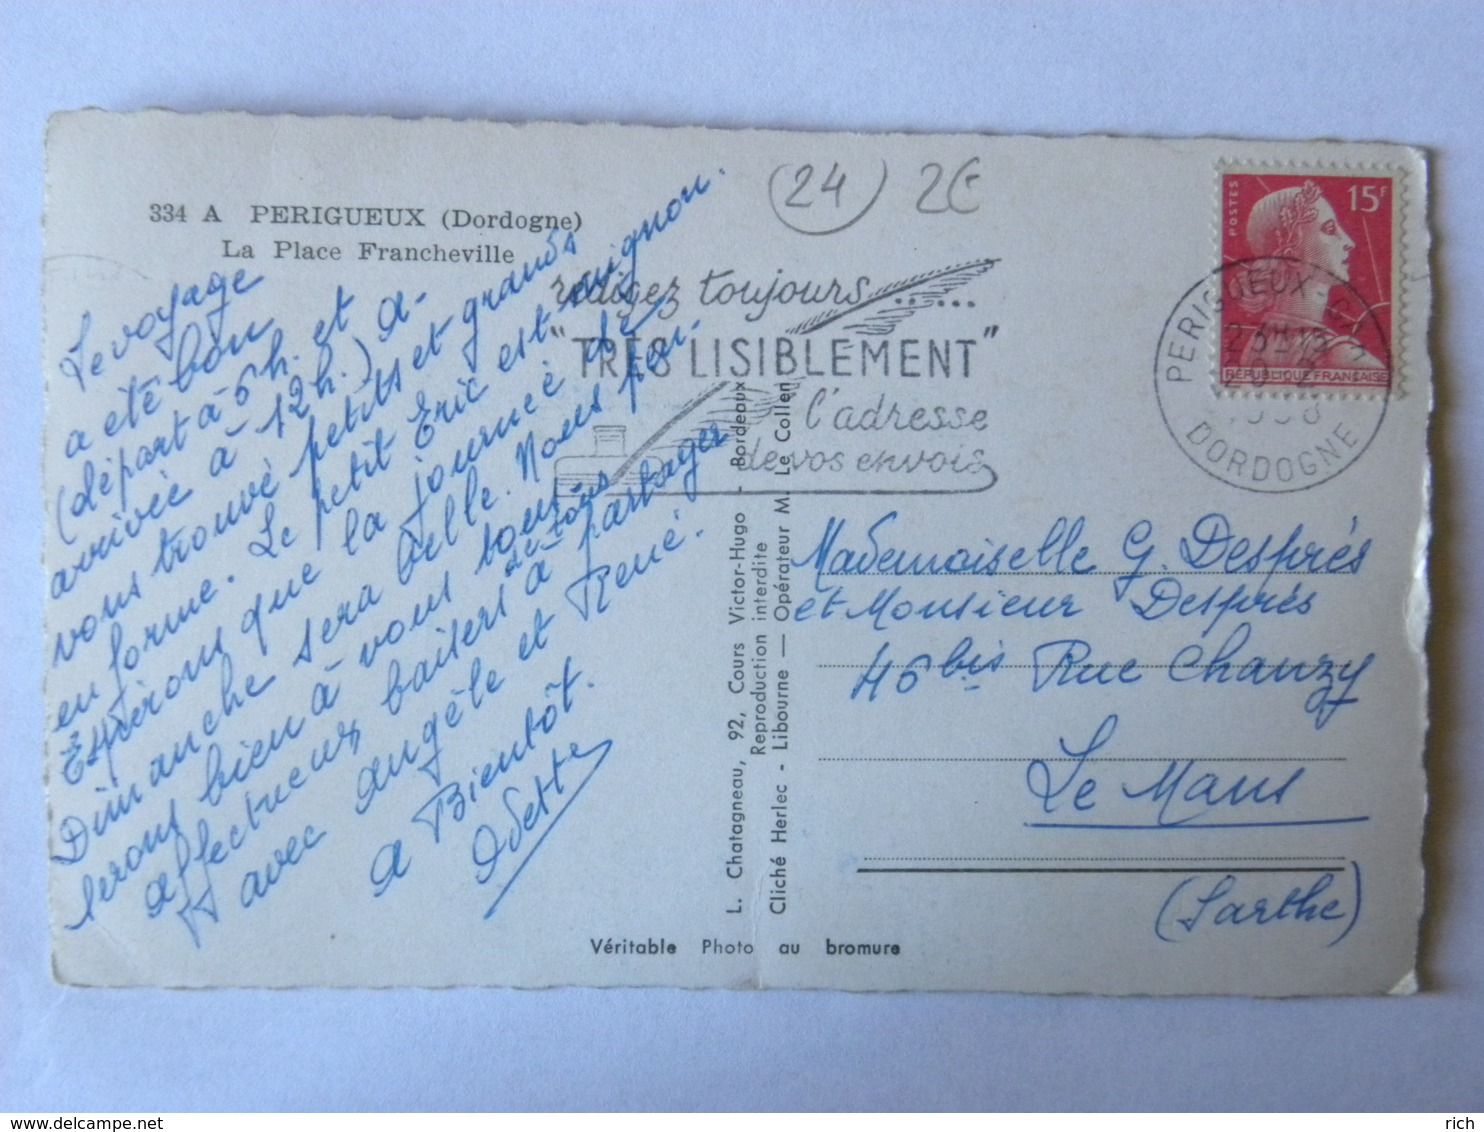 334 A PERIGUEUX (Dordogne)
La Place Francheville
Le voyage
a été bon
(départ à 6 h. et
arrivée à 12 h.) a-
vons trouvé petits et grands
en forme. Le petit Eric est mignon.
Espérons que la journée de
Dimanche sera belle. Nous pen-
serons bien à vous tous
affectueux baisers à partager
de tous
avec angèle et René.
a Bientôt.
Odette
(24) 2€
rédigez toujours ......
"TRÈS LISIBLEMENT"
l'adresse
de vos envois
POSTES
15F
RÉPUBLIQUE FRANÇAISE
PERIGUEUX
DORDOGNE
L. Chatagneau, 92, Cours Victor-Hugo - Bordeaux
Reproduction interdite
Cliché Herlec - Libourne — Opérateur M. Le Collen
Mademoiselle G. Després
et Monsieur Després
46 bis Rue Chanzy
Le Mans
(Sarthe)
Véritable Photo au bromure
delcampe.net
rich